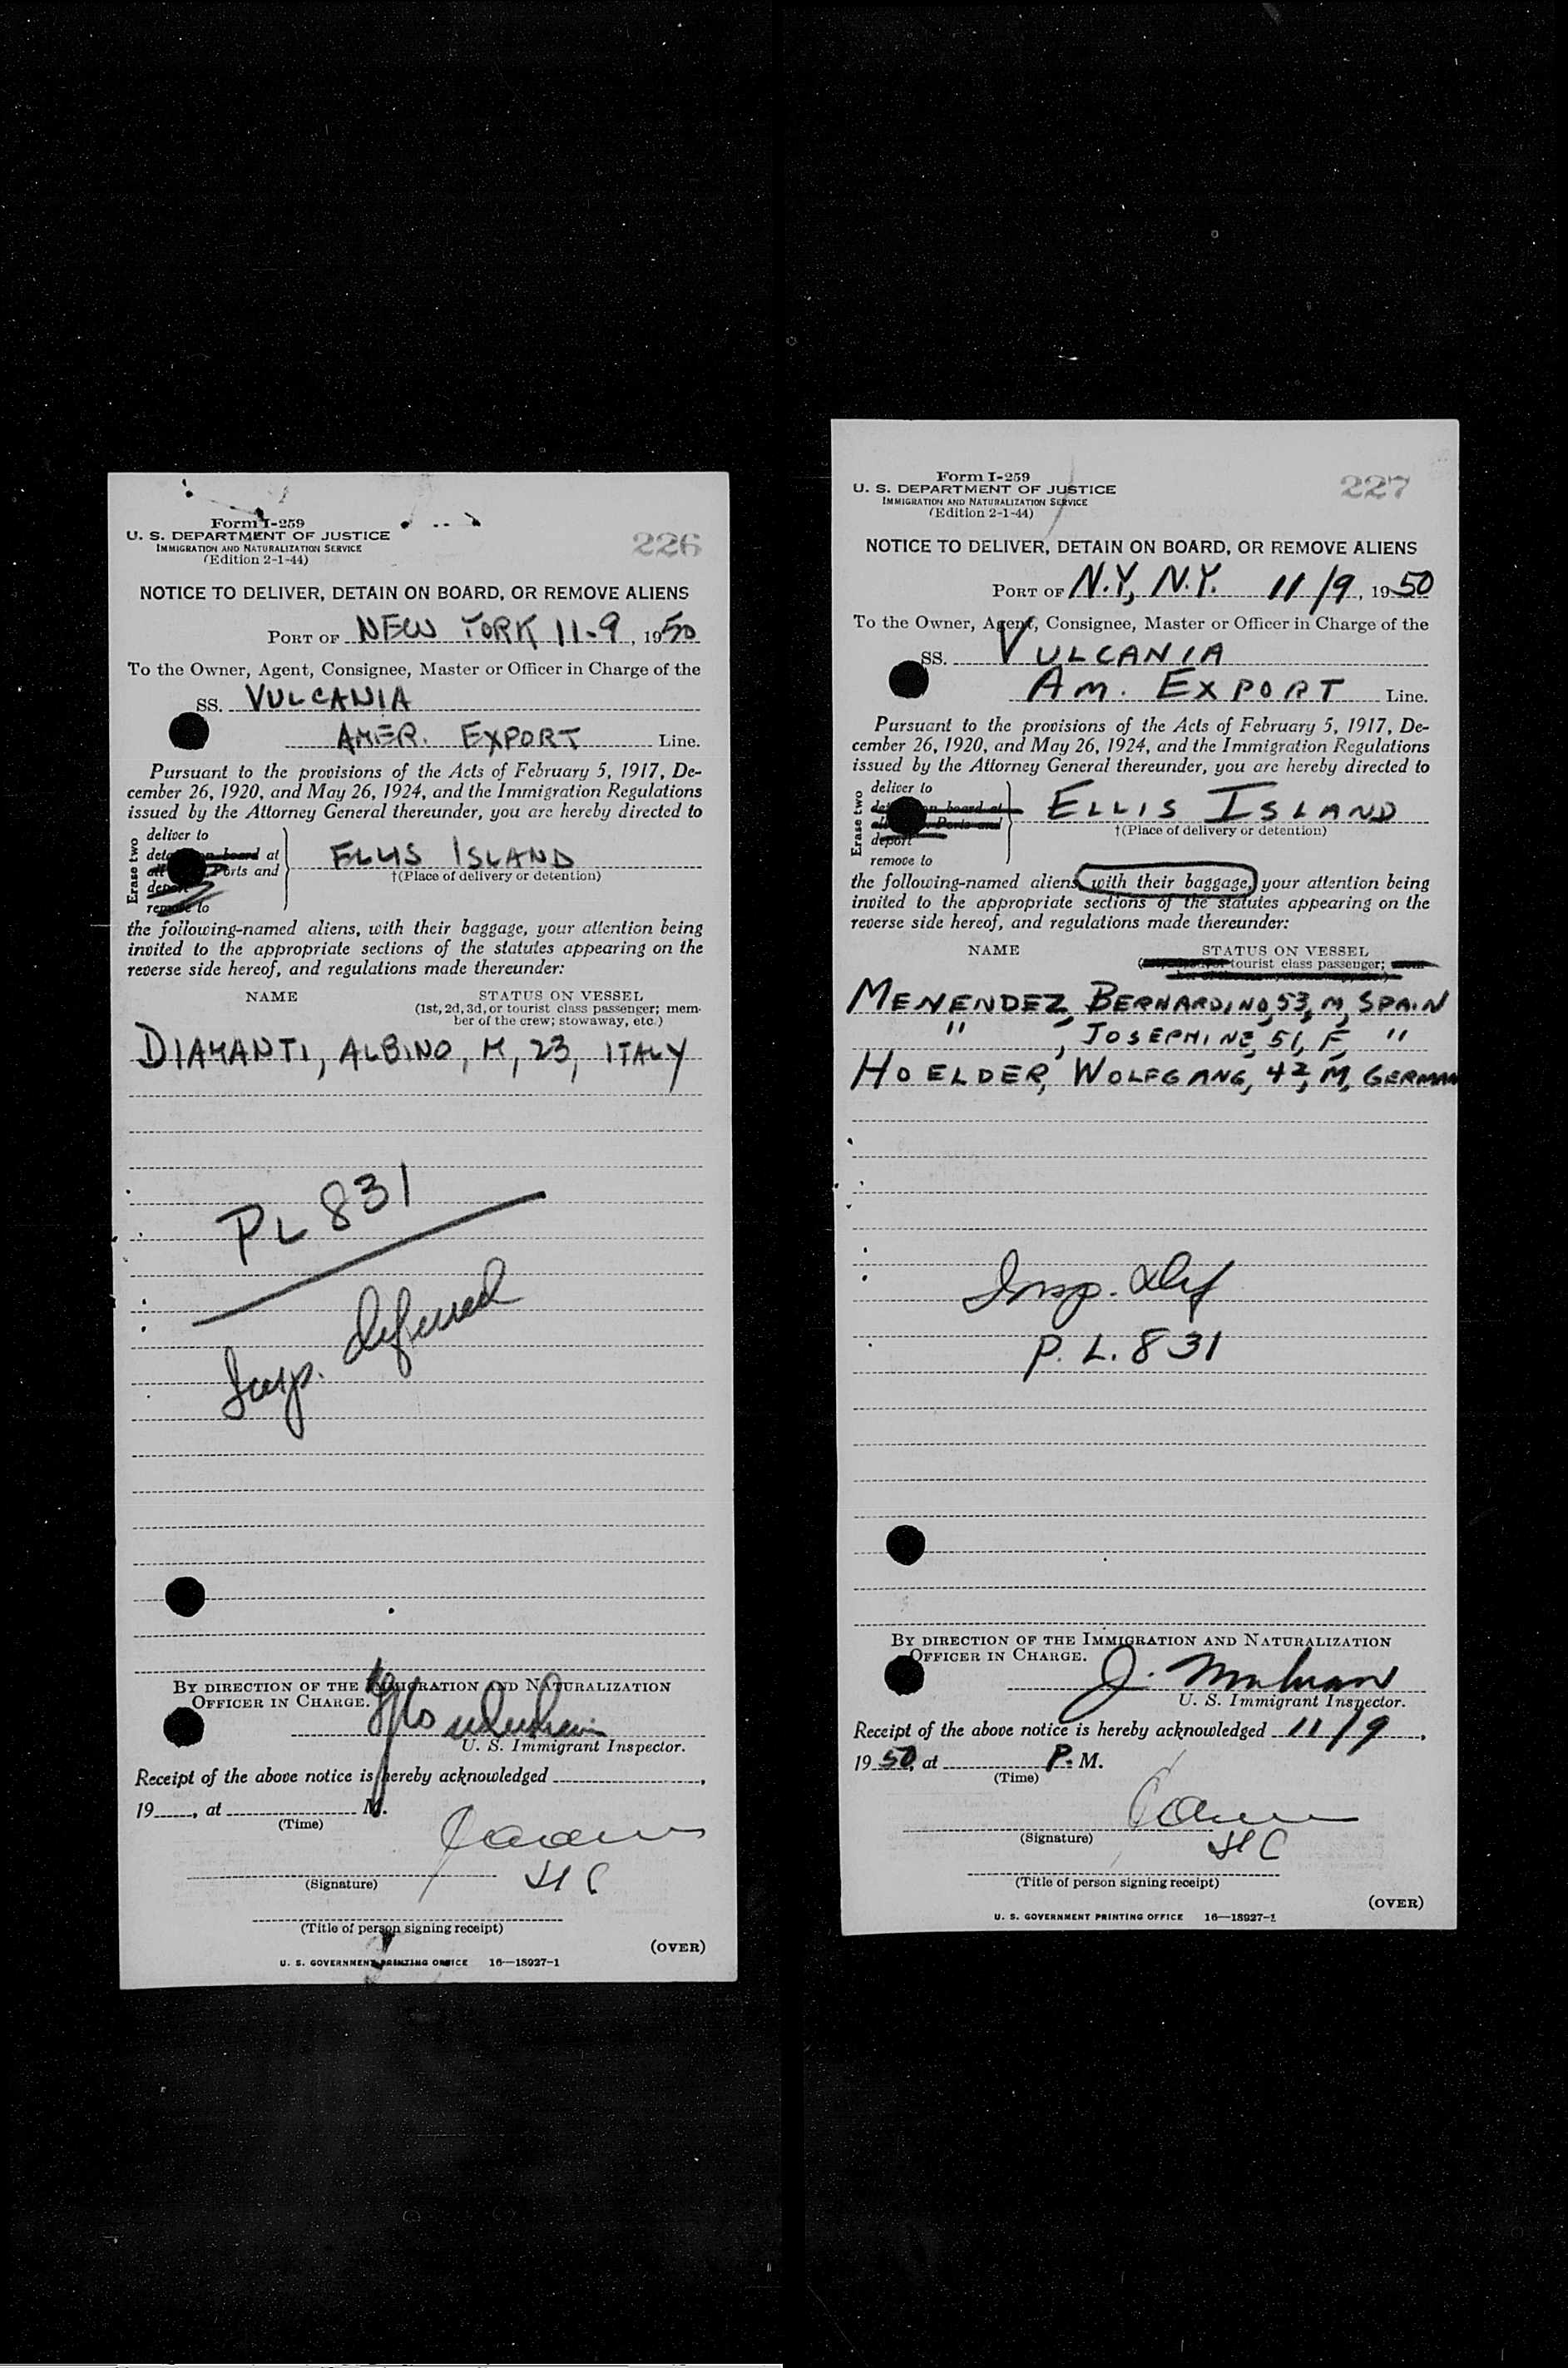 Form I-259
U. S. DEPARTMENT OF JUSTICE
IMMIGRATION AND NATURALIZATION SERVICE
(Edition 2-1-44)
226
NOTICE TO DELIVER, DETAIN ON BOARD, OR REMOVE ALIENS
PORT OF NEW YORK 11-9, 1950
To the Owner, Agent, Consignee, Master or Officer in Charge of the
SS. VULCANIA
AMER. EXPORT Line.
Pursuant to the provisions of the Acts of February 5, 1917, De-
cember 26, 1920, and May 26, 1924, and the Immigration Regulations
issued by the Attorney General thereunder, you are hereby directed to
Erase two
deliver to
on board at
Ports and
deport
remove to
ELLIS ISLAND
†(Place of delivery or detention)
the following-named aliens, with their baggage, your attention being
invited to the appropriate sections of the statutes appearing on the
reverse side hereof, and regulations made thereunder:
NAME STATUS ON VESSEL
(1st, 2d, 3d, or tourist class passenger; mem-
ber of the crew; stowaway, etc.)
DIAMANTI, ALBINO, M, 23, ITALY
PL 831
Insp. deferred
BY DIRECTION OF THE IMMIGRATION AND NATURALIZATION
OFFICER IN CHARGE.
U. S. Immigrant Inspector.
Receipt of the above notice is hereby acknowledged
19 , at M.
(Time)
(Signature)
(Title of person signing receipt)
(OVER)
U. S. GOVERNMENT PRINTING OFFICE 16—18927-1
Form I-259
U. S. DEPARTMENT OF JUSTICE
IMMIGRATION AND NATURALIZATION SERVICE
(Edition 2-1-44)
227
NOTICE TO DELIVER, DETAIN ON BOARD, OR REMOVE ALIENS
PORT OF N.Y, N.Y. 11/9, 1950
To the Owner, Agent, Consignee, Master or Officer in Charge of the
SS. VULCANIA
AM. EXPORT Line.
Pursuant to the provisions of the Acts of February 5, 1917, De-
cember 26, 1920, and May 26, 1924, and the Immigration Regulations
issued by the Attorney General thereunder, you are hereby directed to
Erase two
deliver to
on board at
Ports and
deport
remove to
ELLIS ISLAND
†(Place of delivery or detention)
the following-named aliens, with their baggage, your attention being
invited to the appropriate sections of the statutes appearing on the
reverse side hereof, and regulations made thereunder:
NAME STATUS ON VESSEL
tourist class passenger;
MENENDEZ, BERNARDINO, 53, M, SPAIN
" , JOSEPHINE, 51, F, "
HOELDER, WOLFGANG, 42, M, GERMAN
Insp. def
P. L. 831
BY DIRECTION OF THE IMMIGRATION AND NATURALIZATION
OFFICER IN CHARGE.
U. S. Immigrant Inspector.
Receipt of the above notice is hereby acknowledged 11/9,
19 50, at P. M.
(Time)
(Signature)
(Title of person signing receipt)
(OVER)
U. S. GOVERNMENT PRINTING OFFICE 16—18927-1